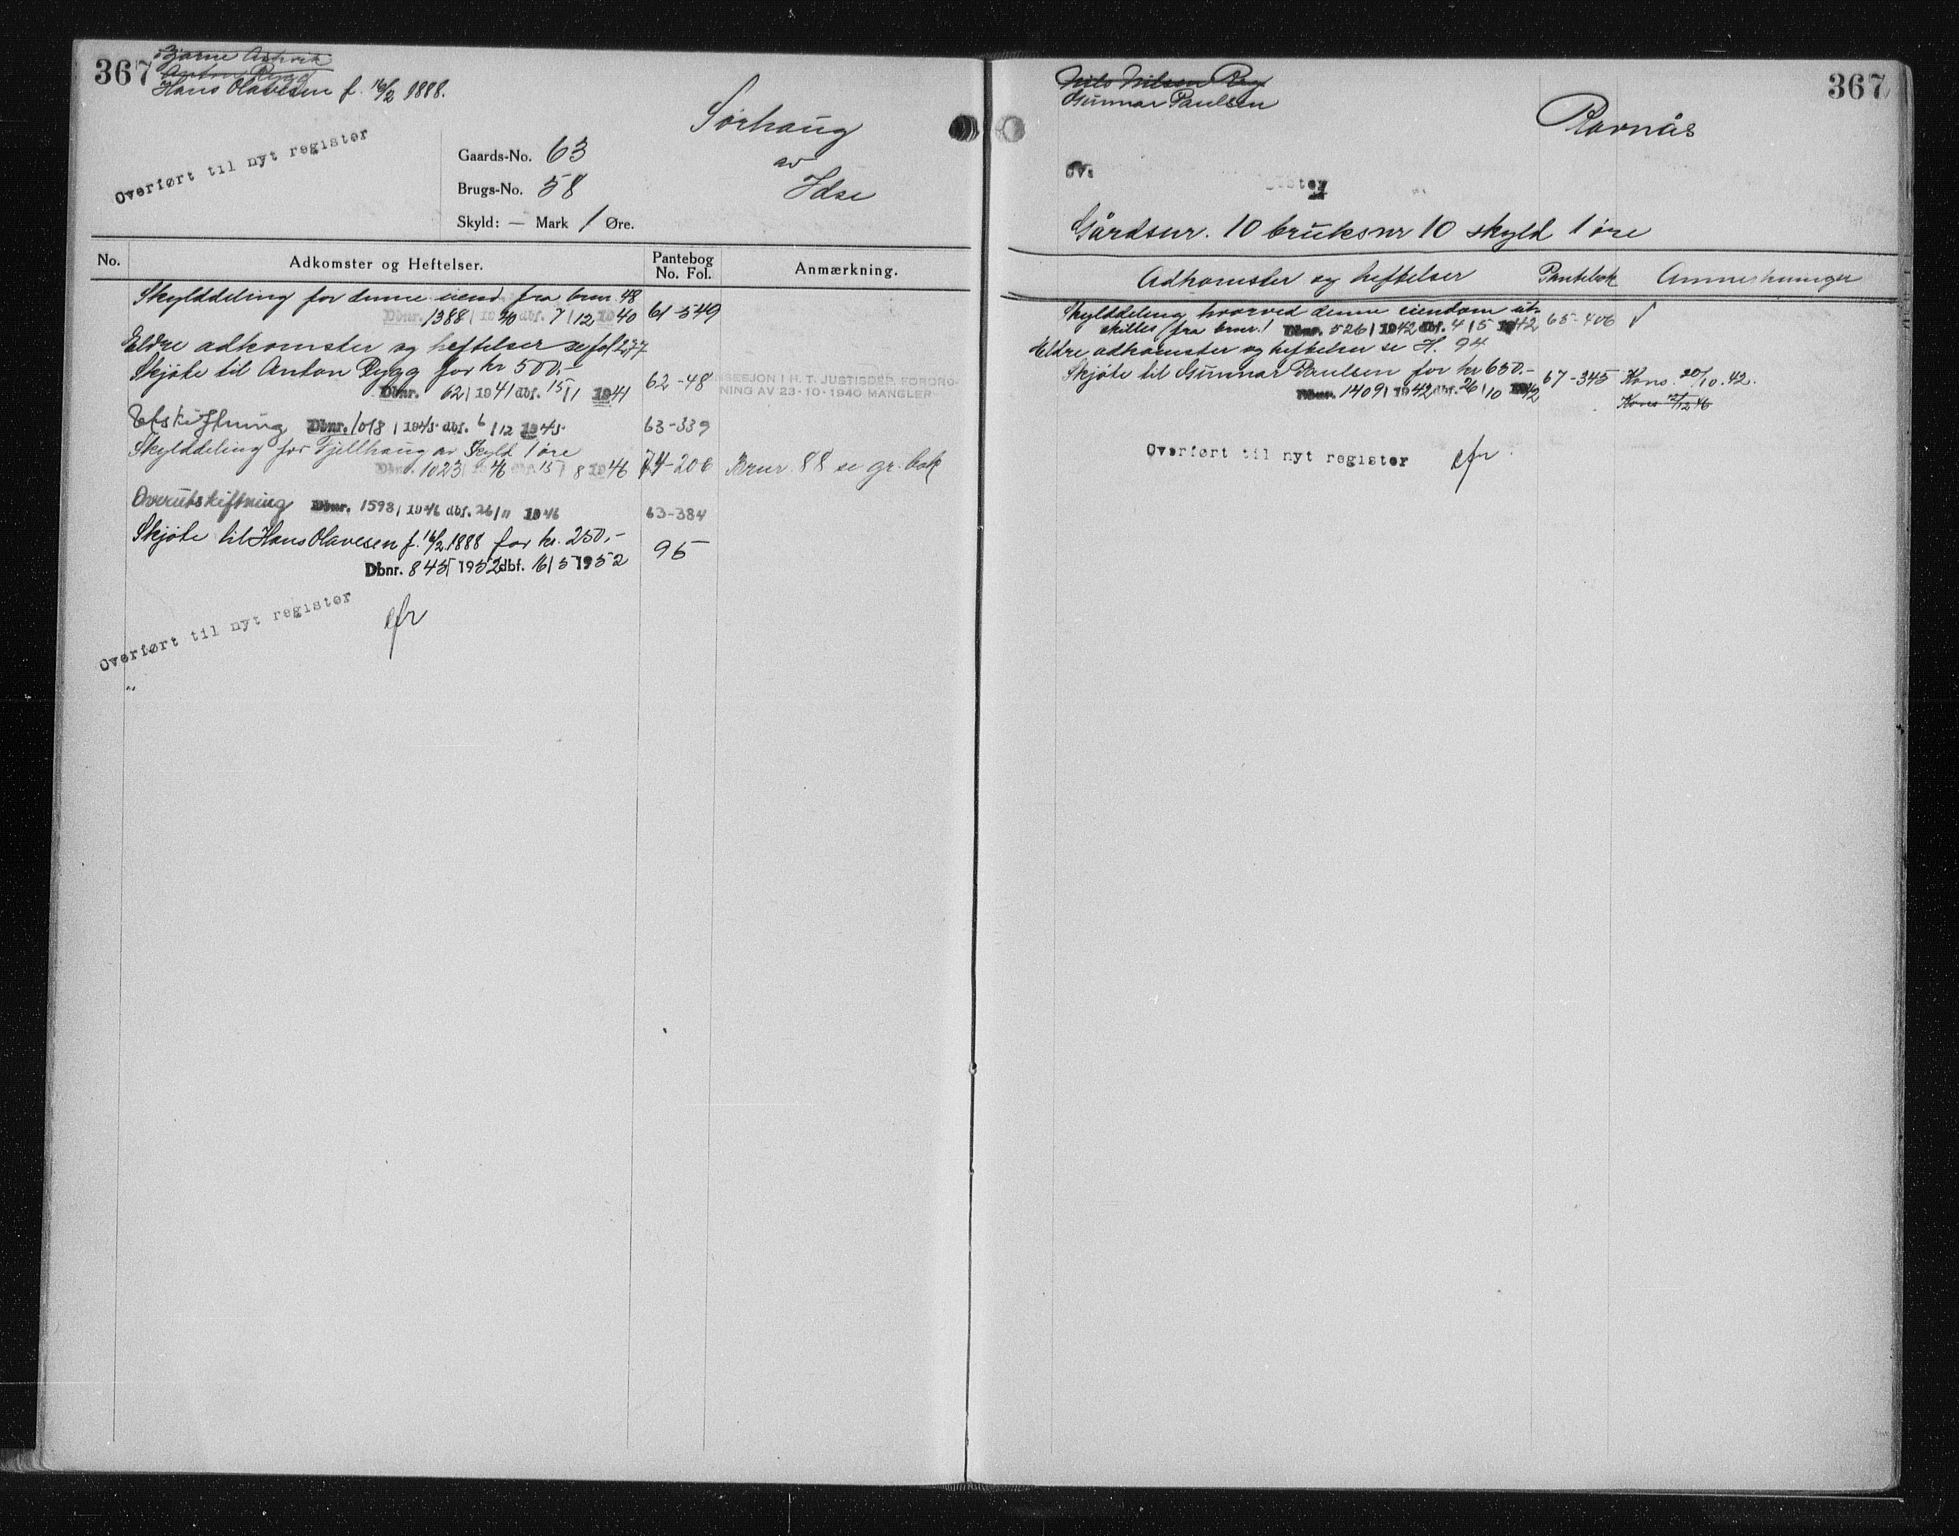 367
Bjarne Askvik
Anton Rygg
Hans Olavesen f. 16/2 1888.
Overført til nyt register
Gaards-No. 63
Brugs-No. 58
Skyld: — Mark 1 Øre.
Sørhaug
av
Idse
No. Adkomster og Heftelser. Pantebog No. Fol. Anmærkning.
Skylddeling for denne eiend fra brnr. 48
Dbnr. 1388 / 1940 dbf. 7 / 12 1940 61-549
Eldre adkomster og heftelser se fol 237
Skjøte til Anton Rygg for kr 500,-
Dbnr. 62 / 1941 dbf. 15 / 1 1941 62-48
NSEEJON I H. T. JUSTISDEP. FORORD-
NING AV 23-10-1940 MANGLER
Utskiftning Dbnr. 1018 / 1945 dbf. 6 / 12 1945 63-339
Skylddeling for Fjellhaug av Skyld 1 øre
Dbnr. 1023 / 1946 dbf. 15 / 8 1946 74-206 Brnr. 88 se gr. bok
Overutskiftning Dbnr. 1593 / 1946 dbf. 26 / 11 1946 63-384
Skjøte til Hans Olavesen f. 16/2 1888 for kr. 250,-
Dbnr. 845 / 1952 dbf. 16 / 5 1952 95
Overført til nyt register
efr
367
Nils Nilsen Reg
Gunnar Paulsen
Ravnås
Gårdsnr. 10 bruksnr 10 skyld 1 øre
Adkomster og heftelser Pantebok Anmerkninger
Skylddeling hvorved denne eiendom ut-
skilles fra brnr. 1 Dbnr. 526 / 1942 dbf. 4 / 5 1942 65-406 √
Eldre adkomster og heftelser se H. 94
Skjøte til Gunnar Paulsen for kr 650.-
Dbnr. 1409 / 1942 dbf. 26 / 10 1942 67-345 Kons. 20/10.42.
Overført til nyt register efr